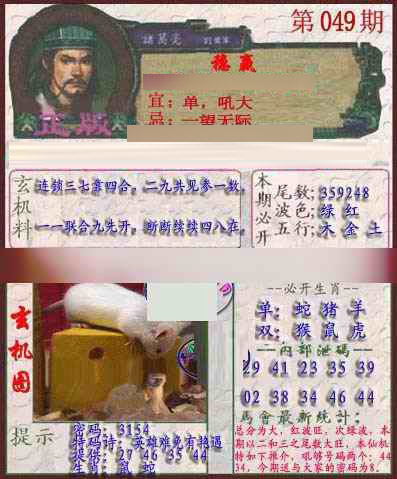 第049期
諸葛亮
稳赢
宜：单，吼大
忌：一望无际
正版
玄机料
连锁三七靠四合，二九共见参一数，
一一联合九先开，断断续续四八在。
本期必开
尾数：359248
波色：绿 红
五行：木 金 土
玄机图
提示
密码：3154
特码诗：英雄难免有艳遇
提供：27 46 35 44
生肖：鼠 蛇
--必开生肖--
单：蛇 猪 羊
双：猴 鼠 虎
--内部泄码--
29 41 23 35 39
02 38 34 46 44
马會最新统計：
总分为大，红波旺，次绿波，本
期以二和三之尾数大旺，本仙机
特如下推介，吼够号码两个：44
34，今期送与大家的密码为8。